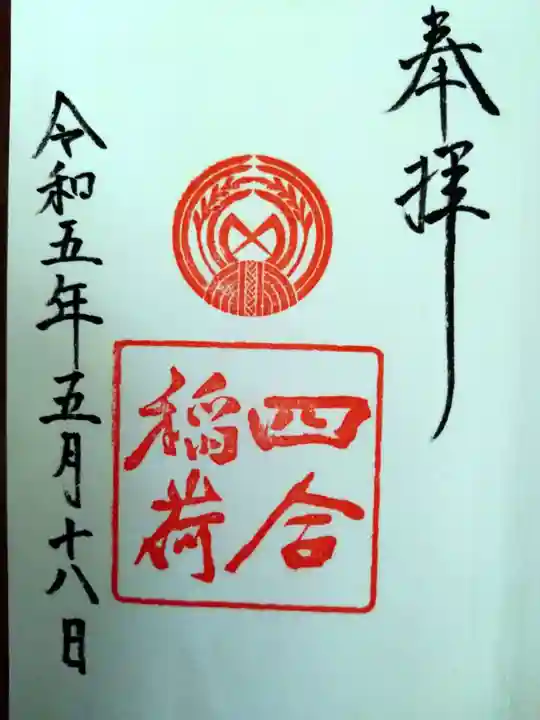 奉拝
四合
稲荷
令和五年五月十八日